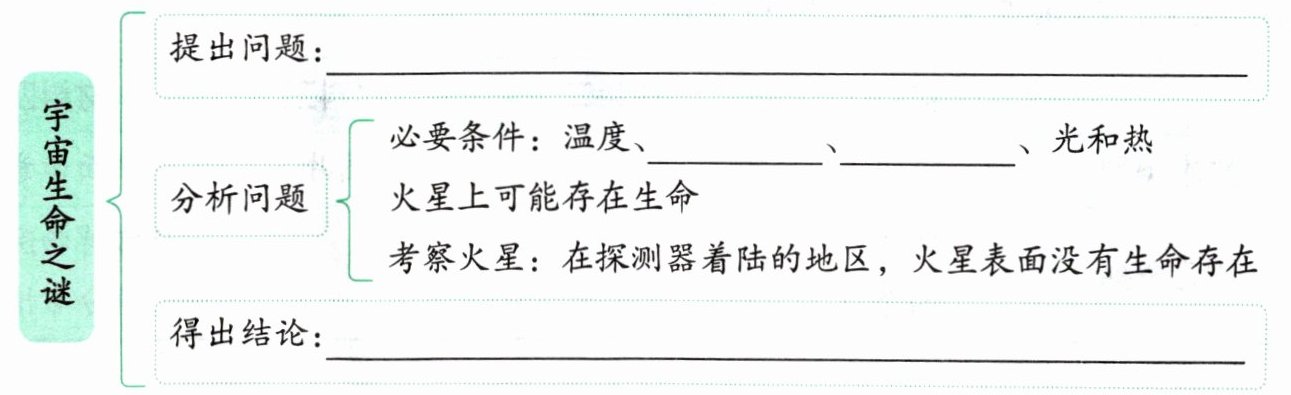 宇宙生命之谜
提出问题：
分析问题
必要条件：温度、、、光和热
火星上可能存在生命
考察火星：在探测器着陆的地区，火星表面没有生命存在
得出结论：